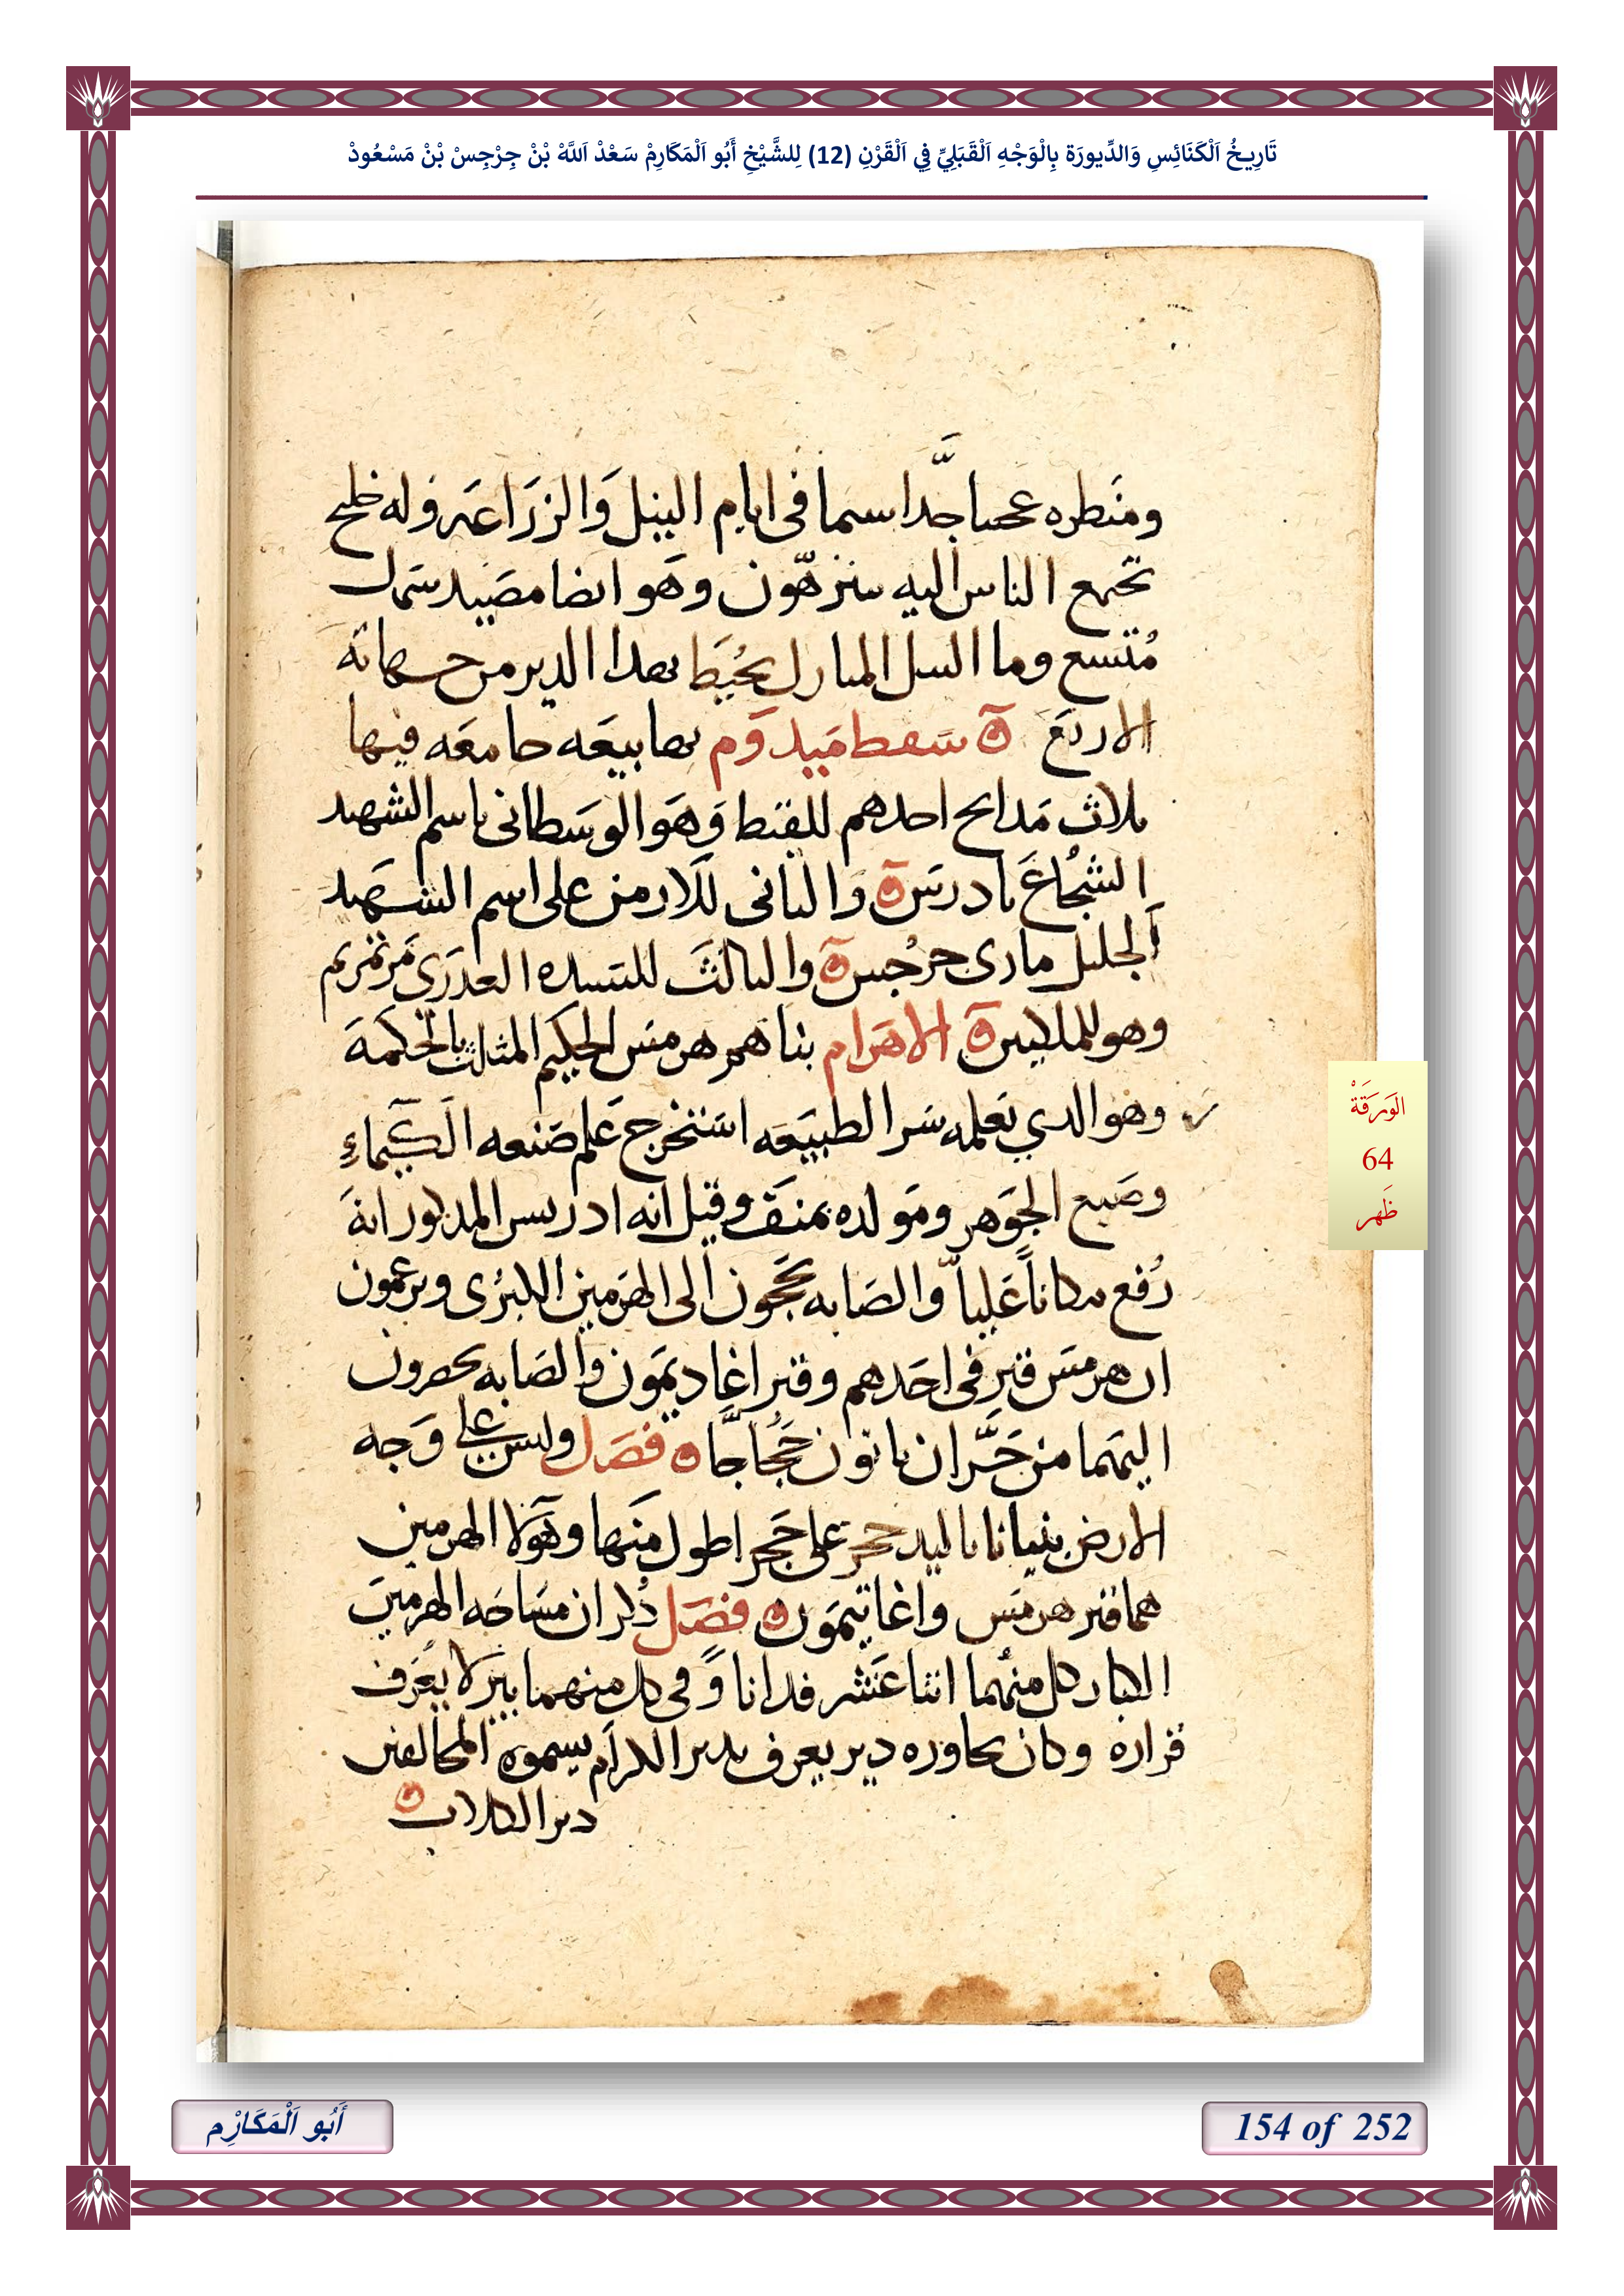 تَارِيخُ اَلْكَنَائِسِ وَالدِّيورَة بِالْوَجْهِ اَلْقَبَلِيِّ فِي اَلْقَرْنِ (12) لِلشَّيْخِ أَبُو اَلْمَكَارِمْ سَعْدْ اَللَّهْ بْنْ جِرْجِسْ بْنْ مَسْعُودْ
ومنظره عجبا جدا سيما فى ايام النيل والزراعه وله خليج
تجمع الناس اليه يتنزهون وهو ايضا مصيد سمك
متسع وما النيل المبارك يحيط بهدا الدير من جهاته
الاربع ۞ سفط ميدوم بها بيعه جامعه فيها
ثلاث مدابح احدهم للقبط وهو الوسطانى باسم الشهيد
الشجاع تادرس ۞ والثانى للارمن على اسم الشهيد
الجليل مارى جرجس ۞ والثالث للسيده العدرى مرتمريم
وهو للملكيين ۞ الاهرام بناهم هرمس الحكيم المثلث بالحكمة
وهو الدي بعلمه سر الطبيعه استخرج علم صنعه الكيماء
وصبغ الجوهر ومولده بمنف وقيل انه ادريس المدكور انه
رُفع مكاناً علياً والصابه يحجون الى الهرمين الكبرى ويزعمون
ان هرمس قبر فى احدهم وقبر اغاديمون والصابه يحضرون
اليهما من حَرَّان ياتون حُجاجًا ۞ فصل وليس على وجه
الارض بنيانا باليد حجر على حجر اطول منها وهولا الهرمين
هما قبر هرمس واغاتيمون ۞ فصل دُكر ان مساحه الهرمين
الكبار كل منهما اثنا عشر فدانا وفى كل منهما بير لا يعرف
قراره وكان يجاوره دير يعرف بدير الكرام يسموه المخالفين
دير الكلاب ۞
الوَرَقَةْ
64
ظَهر
أَبُو اَلْمَكَارِْم
154 of 252